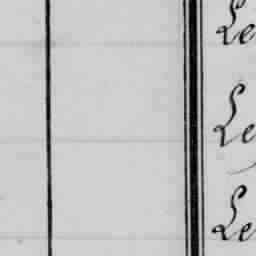 Le
Le
Le